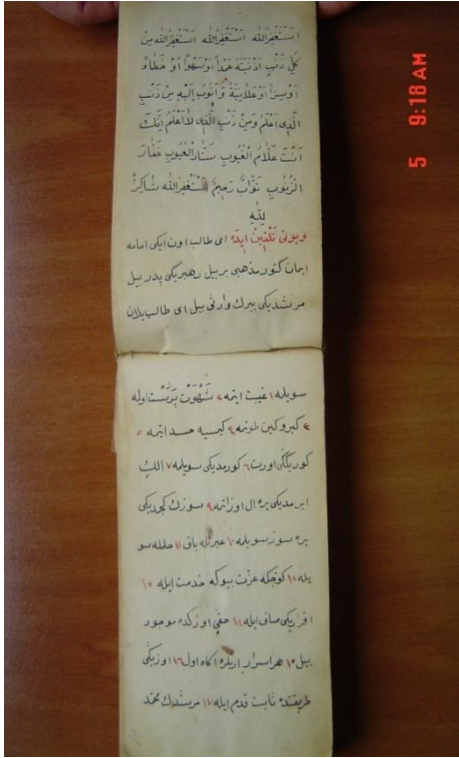 استغفر الله استغفر الله استغفر الله من
كل ذنب اذنبته عمدا او سهوا او خطاء
او سرا او علانية و اتوب اليه من ذنب
الذى اعلم ومن ذنب الذى لا اعلم انك
انت علام الغيوب ستار العيوب غفار
الذنوب تواب رحيم استغفر الله شاكرا
لله
و بونى تلقين ايده اى طالب اون ايكى امامه
ايمان كتور مذهبى بر بيل رهبريكى پدر بيل
مرشديكى پيرك وارثى بيل اى طالب يلان
سويله ١ غيبت ايتمه ٢ شهوت پرست اوله
٣ كبر و كين طوتمه ٤ كيمسيه حسد ايتمه ٥
كوردیگگى اورت ٦ كورمديكى سويله ٧ الك
ايرمديكى يره ال اوزاتمه ٩ سوزك كچمديكى
يره سوز سويلمه ١٠ عبرتله باق ١١ حلمله سو
يله ١٢ كوچكه عزت بيوكه خدمت ايله ١٣
اقراريكى صاف ايله ١٤ حقى اوزكده موجود
بيل ١٥ هر اسرار اكاه اول ١٦ اوزيكى
طريقتده ثابت قدم ايله ١٧ مرشدك محمد
5 9:18 AM